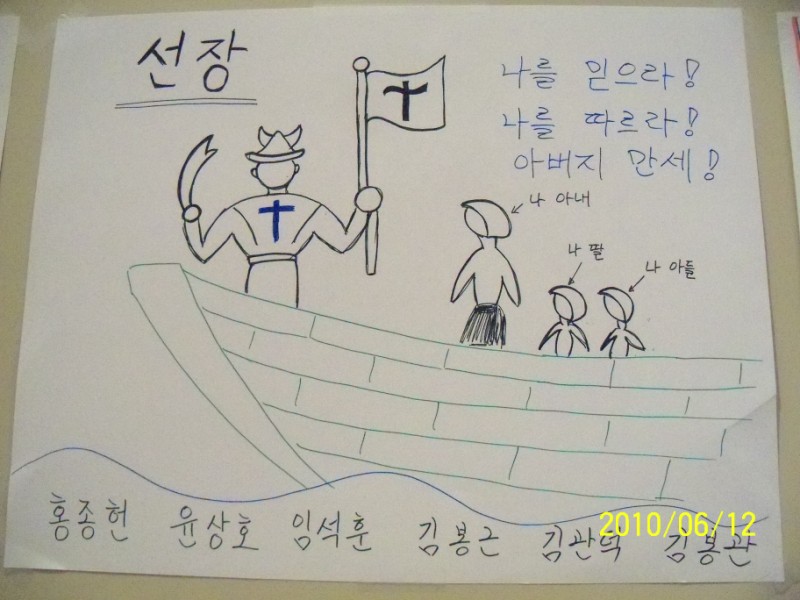 선장
나를 믿으라!
나를 따르라!
아버지 만세!
나 아내
나 딸
나 아들
홍종헌 윤상호 임석훈 김봉근 김관덕 김봉관
2010/06/12